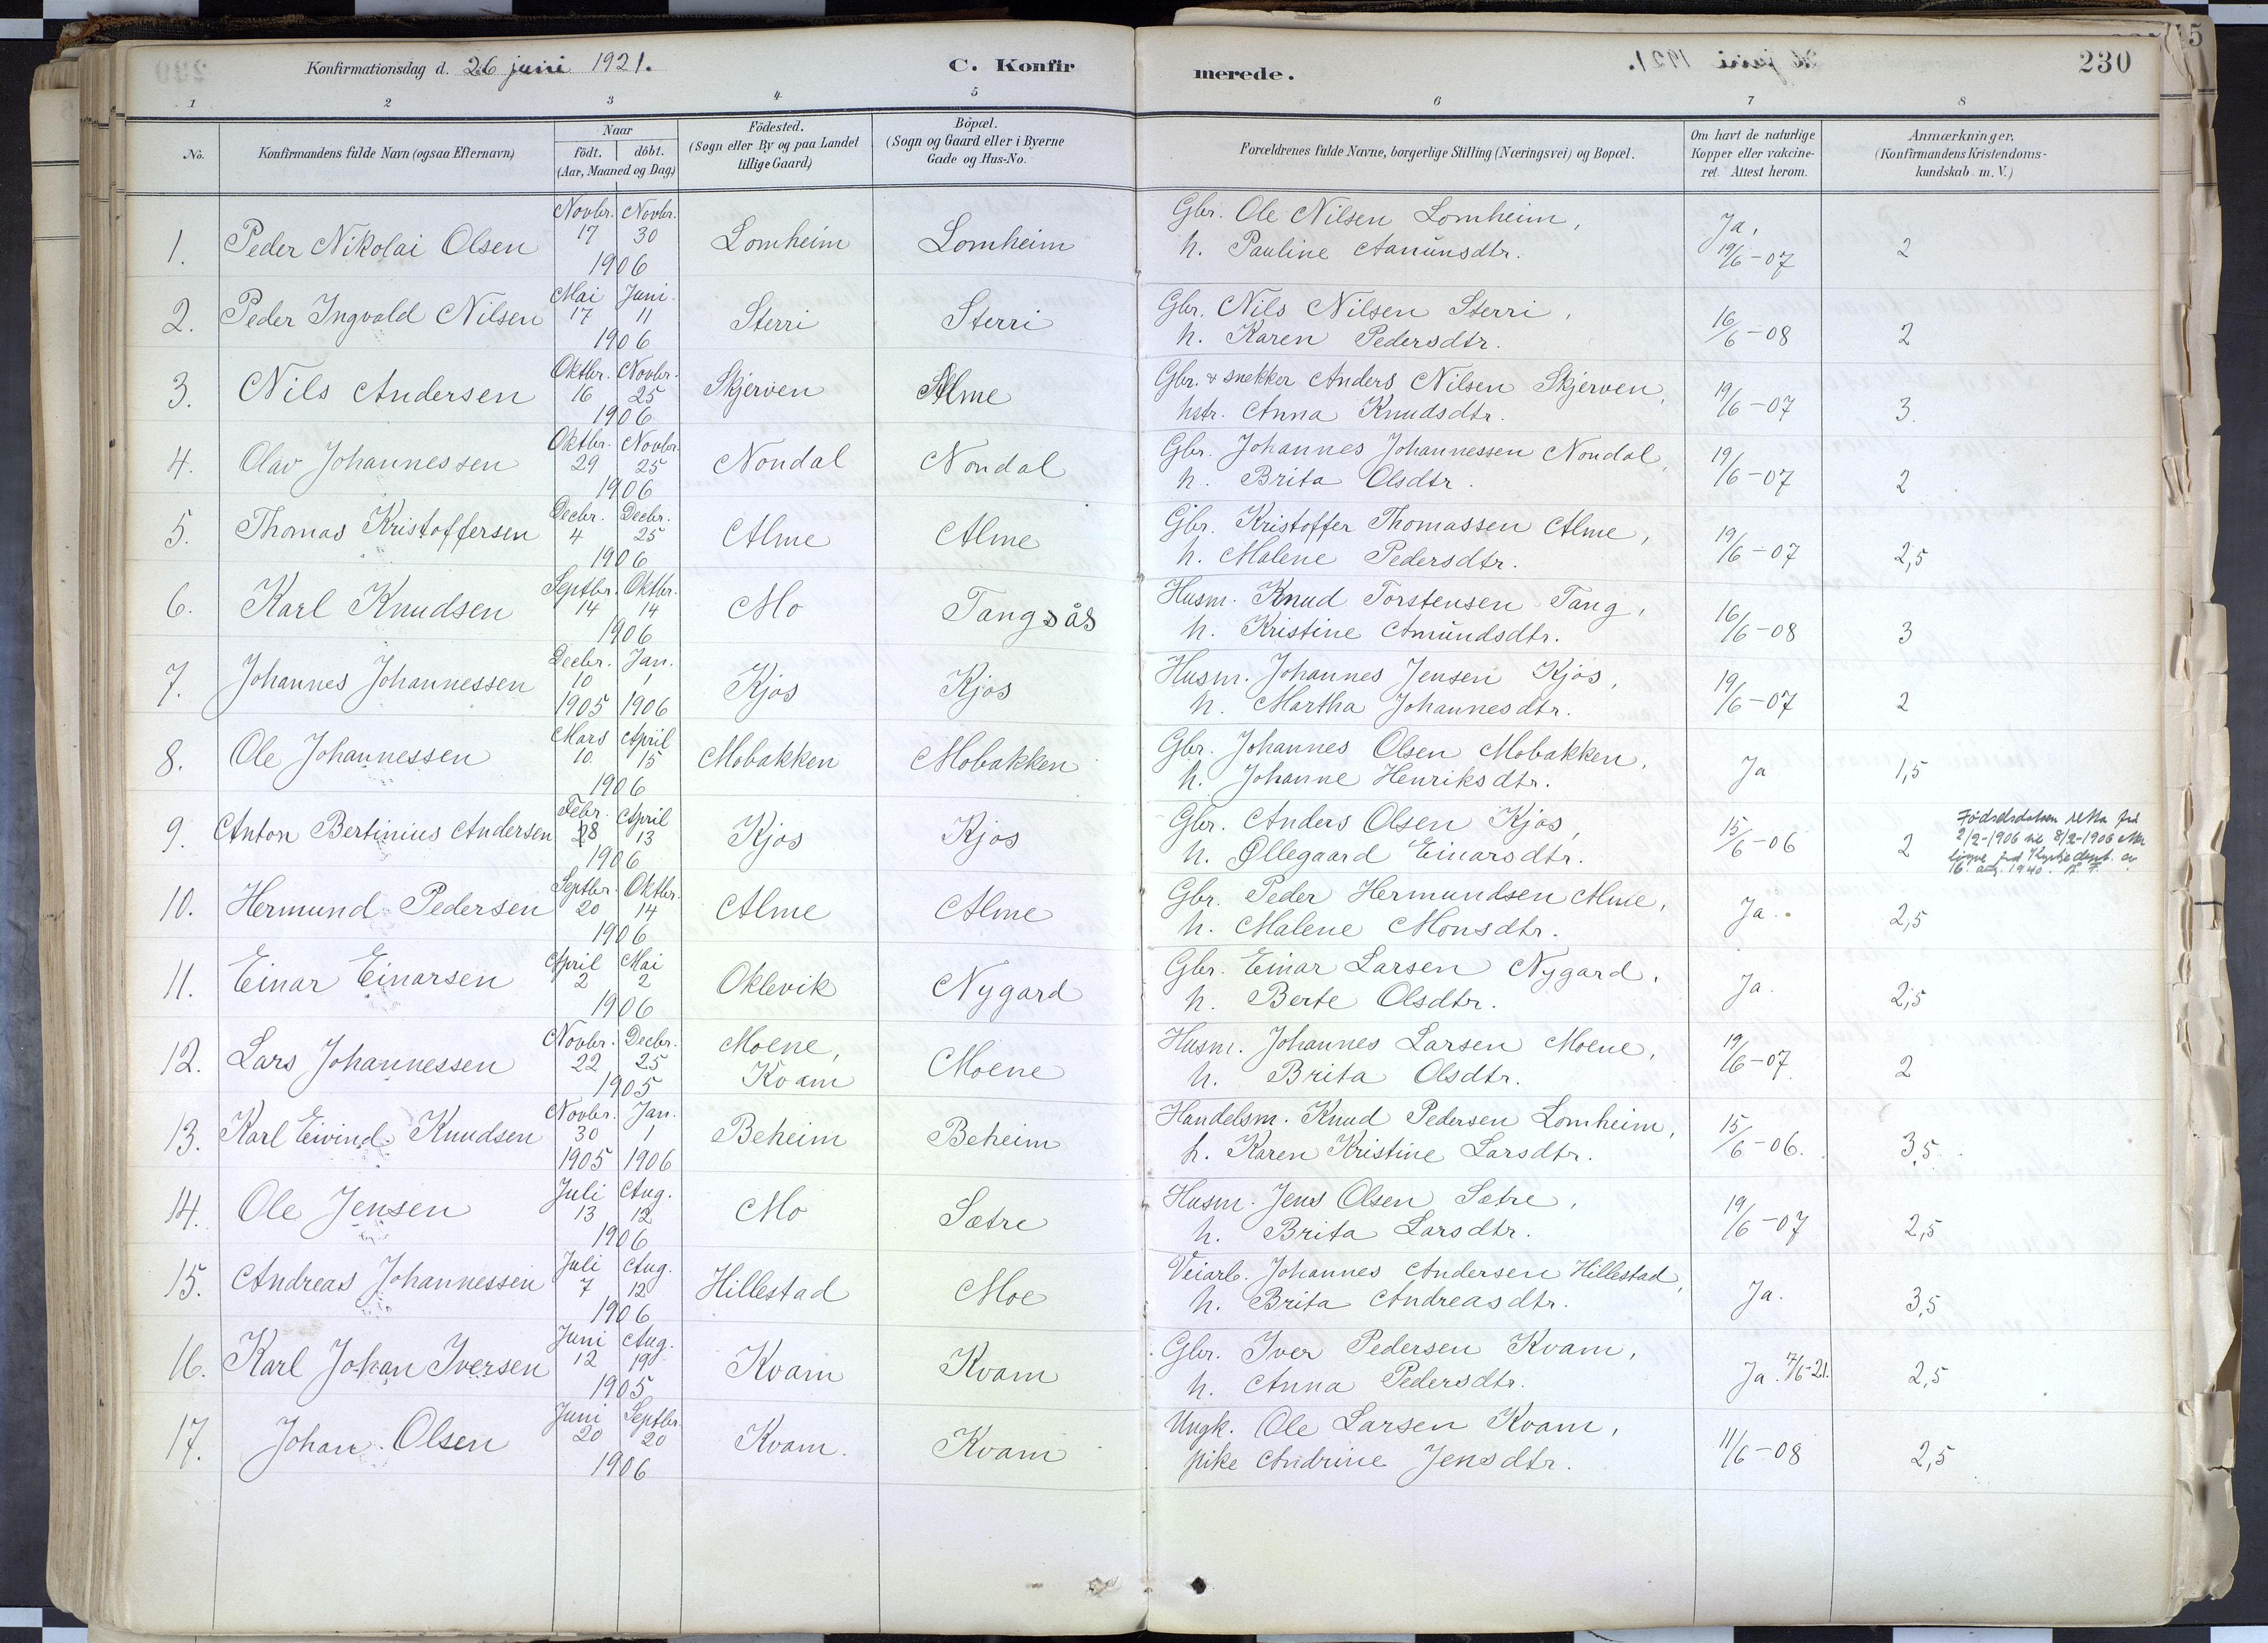 Konfirmationsdag d. 26 juni 1921. C. Konfirmerede. 230
1 2 3 4 5 6 7 8
No. Konfirmandens fulde Navn (ogsaa Efternavn) Naar födt. döbt. (Aar, Maaned og Dag) Födested. (Sogn eller By og paa Landet tillige Gaard) Böpæl. (Sogn og Gaard eller i Byerne Gade og Hus-No. Forældrenes fulde Navne, borgerlige Stilling (Næringsvei) og Bopæl. Om havt de naturlige Kopper eller vakcineret. Attest herom. Anmærkninger, (Konfirmandens Kristendomskundskab m. V.)
1. Peder Nikolai Olsen Novbr. 17 Novbr. 30 1906 Lomheim Lomheim Gbr. Ole Nilsen Lomheim, h. Pauline Aamunsdtr. Ja, 19/6-07 2
2. Peder Ingvald Nilsen Mai 17 Juni 11 1906 Sterri Sterri Gbr. Nils Nilsen Sterri, h. Karen Pedersdtr. 16/6-08 2
3. Nils Andersen Oktbr. 16 Novbr. 25 1906 Skjerven Alme Gbr. & snekker Anders Nilsen Skjerven, hstr. Anna Knudsdtr. 19/6-07 3
4. Olav Johannessen Oktbr. 29 Novbr. 25 1906 Nondal Nondal Gbr. Johannes Johannessen Nondal, h. Brita Olsdtr. 19/6-07 2
5. Thomas Kristoffersen Decbr. 4 Decbr. 25 1906 Alme Alme Gbr. Kristoffer Thomassen Alme, h. Malene Pedersdtr. 19/6-07 2,5
6. Karl Knudsen Septbr. 14 Oktbr. 14 1906 Mo Tangsås Husm. Knud Torstensen Tang, h. Kristine Amundsdtr. 16/6-08 3
7. Johannes Johannessen Decbr. 10 1905 Jan. 1 1906 Kjos Kjos Husm. Johannes Jensen Kjos, h. Martha Johannesdtr. 19/6-07 2
8. Ole Johannessen Mars 10 April 15 1906 Mobakken Mobakken Gbr. Johannes Olsen Mobakken, h. Johanne Henriksdtr. Ja 1,5
9. Anton Bertinius Andersen Febr. 8 April 13 1906 Kjos Kjos Gbr. Anders Olsen Kjos, h. Øllegaard Einarsdtr. 15/6-06 2 Fødselsdatoen retta frå 2/2-1906 til 8/2-1906 etter løyve frå Kyrkjedept. av 16. aug. 1940.
10. Hermund Pedersen Septbr. 20 Oktbr. 14 1906 Alme Alme Gbr. Peder Hermundsen Alme, h. Malene Monsdtr. Ja. 2,5
11. Einar Einarsen April 2 Mai 2 1906 Oklevik Nygard Gbr. Einar Larsen Nygard, h. Berte Olsdtr. Ja. 2,5
12. Lars Johannessen Novbr. 22 Decbr. 25 1905 Moene, Kvam Moene Husm. Johannes Larsen Moene, h. Brita Olsdtr. 19/6-07 2
13. Karl Eivind Knudsen Novbr. 30 1905 Jan. 1 1906 Beheim Beheim Handelsm. Knud Pedersen Lomheim, h. Karen Kristine Larsdtr. 15/6-06. 3,5
14. Ole Jensen Juli 13 Aug. 12 1906 Mo Sætre Husm. Jens Olsen Sætre, h. Brita Larsdtr. 19/6-07 2,5
15. Andreas Johannessen Juli 7 Aug. 12 1906 Hillestad Moe Veiarb. Johannes Andersen Hillestad, h. Brita Andreasdtr. Ja. 3,5
16. Karl Johan Iversen Juni 12 Aug. 19 1905 Kvam Kvam Gbr. Iver Pedersen Kvam, h. Anna Pedersdtr. Ja. 7/6-21. 2,5
17. Johan Olsen Juni 20 Septbr. 20 1906 Kvam. Kvam Ungk. Ole Larsen Kvam, pike Andrine Jensdtr. 11/6-08 2,5